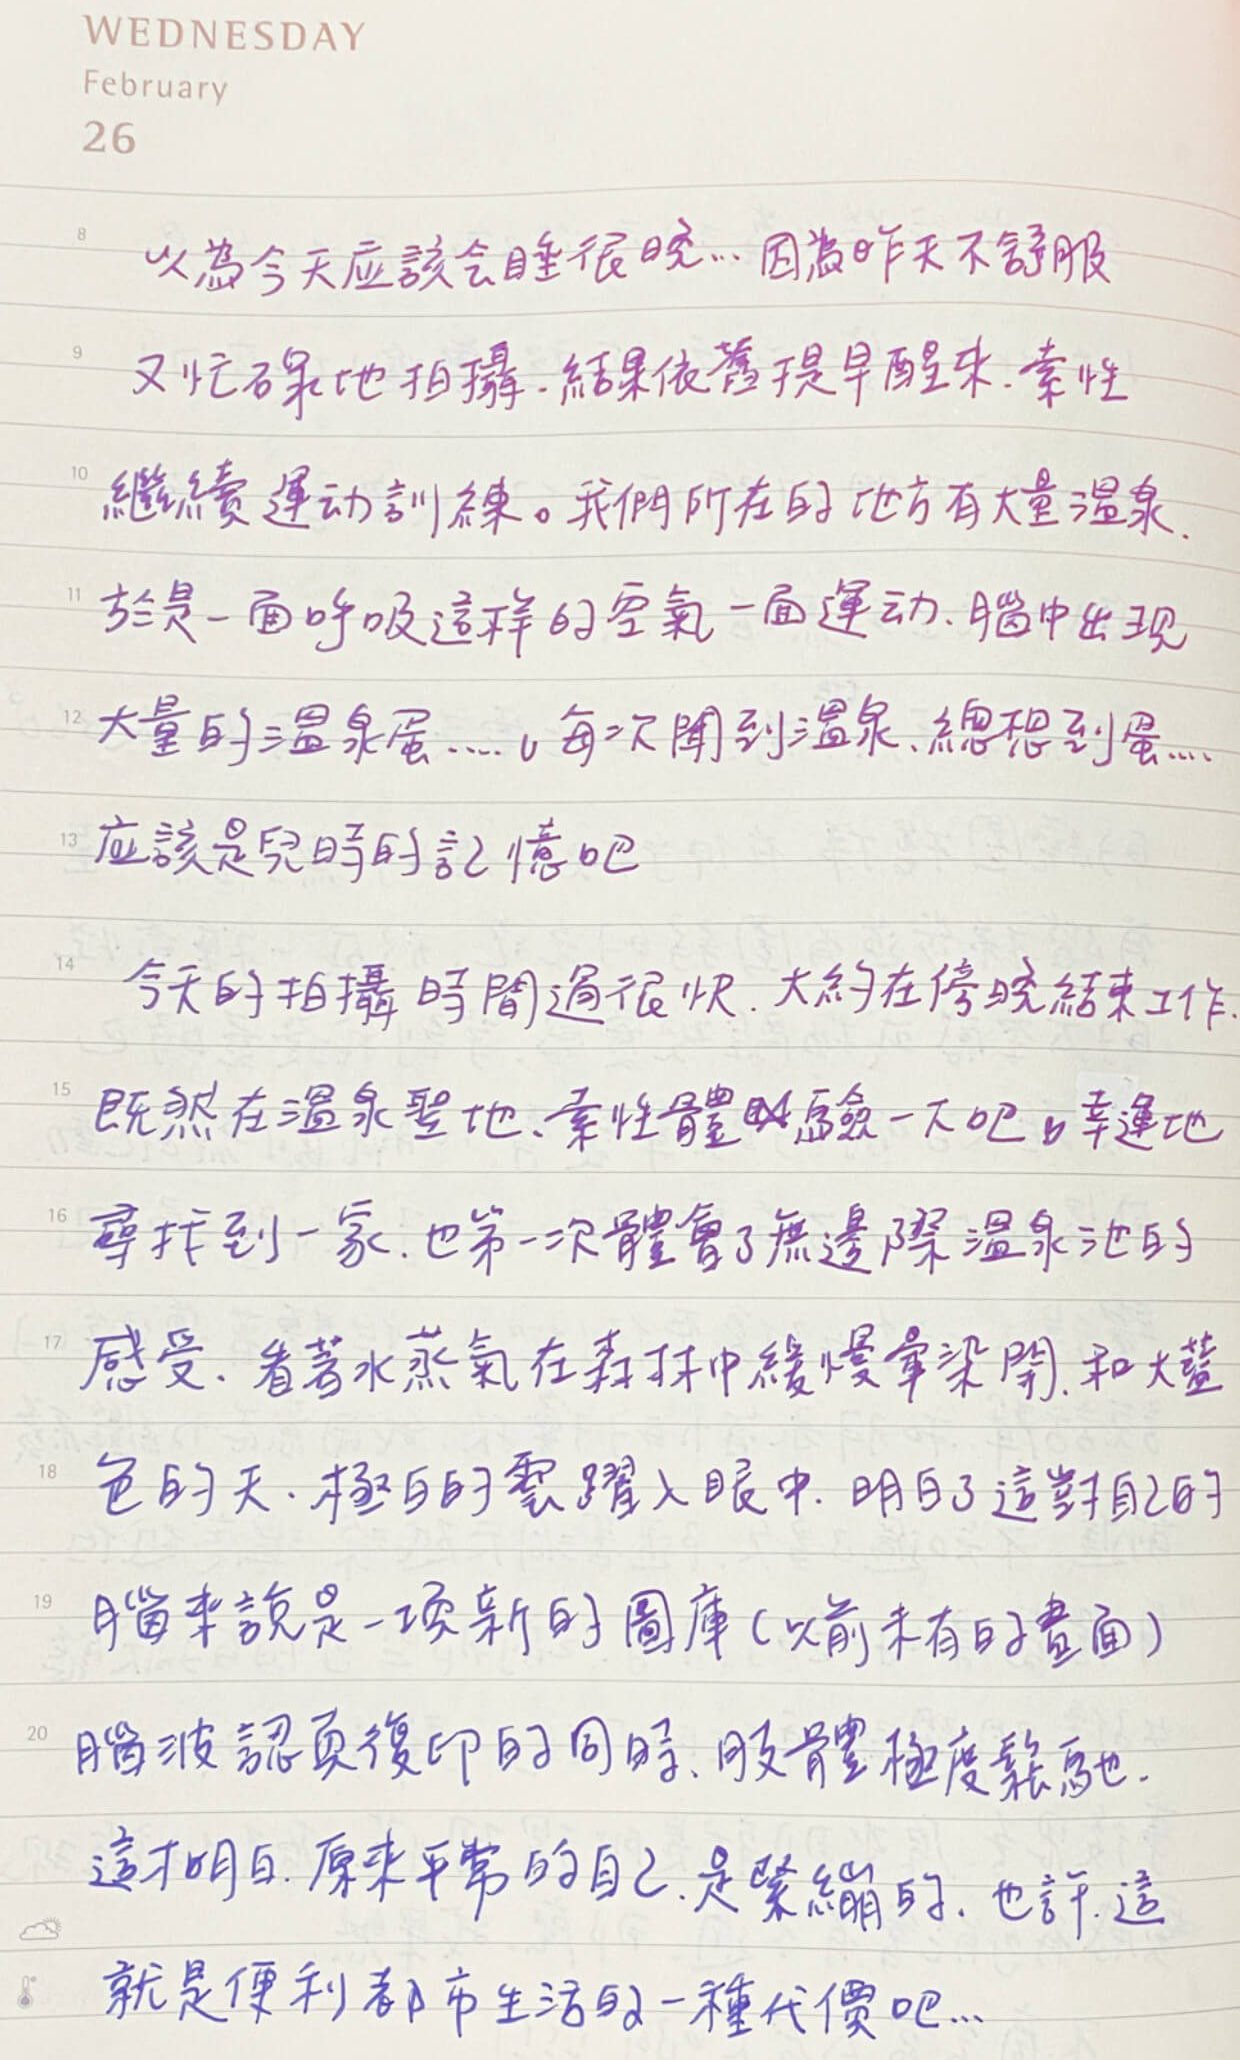 WEDNESDAY
February
26
8
以為今天应該会睡很晚… 因為昨天不舒服
9
又忙碌地拍攝.結果依舊提早醒来.索性
10
繼續運动訓練。我們所在的地方有大量温泉.
11
於是一面呼吸這样的空氣一面運动、腦中出现
12
大量的温泉蛋.....。每次聞到温泉、總想到蛋....
13
应該是兒時的記憶吧
14
今天的拍攝時間過很快.大約在傍晚結束工作.
15
既然在温泉聖地、索性體驗一下吧。幸運地
16
尋找到一家.也第一次體會了無邊際温泉池的
17
感受.看著水蒸氣在森林中緩慢暈染開.和大藍
18
色的天.極白的雲躍入眼中.明白了這對自己的
19
腦来說是一項新的圖庫(以前未有的畫面)
20
腦波認真復印的同時、肢體極度鬆馳.
這才明白.原来平常的自己.是緊繃的、也許.這
就是便利都市生活的一種代價吧…